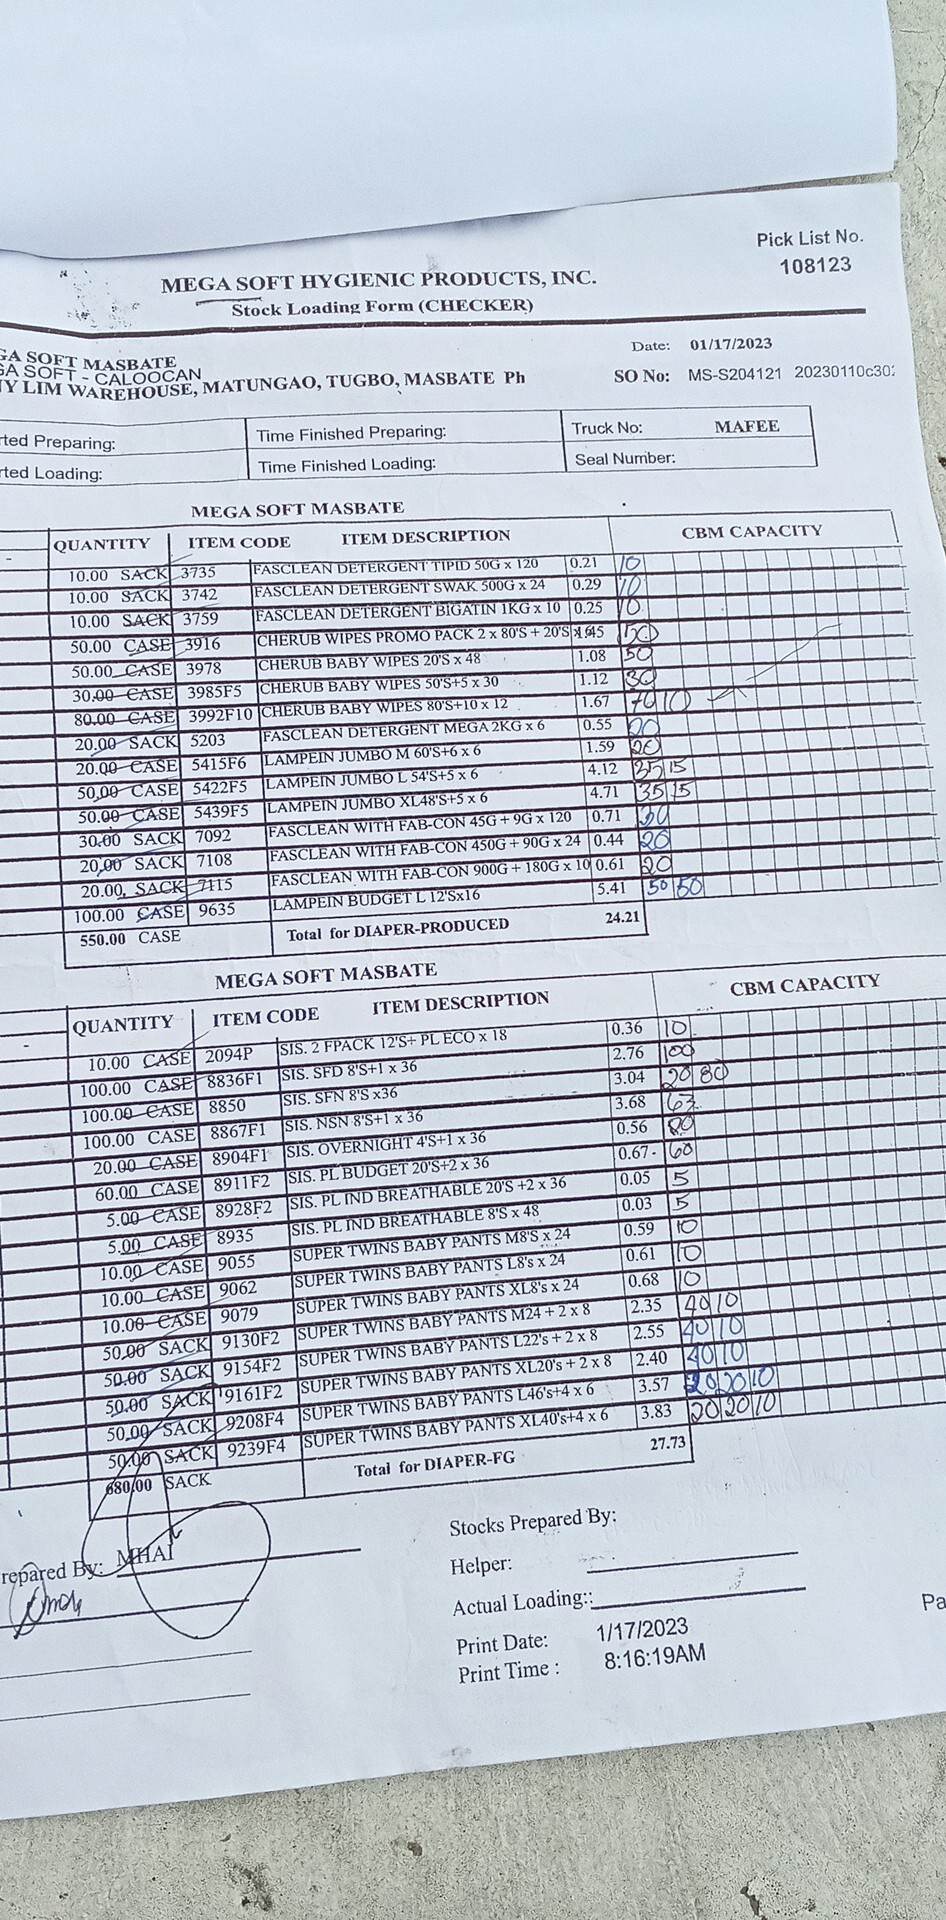 Pick List No.
108123
MEGA SOFT HYGIENIC PRODUCTS, INC.
Stock Loading Form (CHECKER)
GA SOFT MASBATE
GA SOFT - CALOOCAN
NY LIM WAREHOUSE, MATUNGAO, TUGBO, MASBATE Ph
Date: 01/17/2023
SO No: MS-S204121 20230110c30
rted Preparing: Time Finished Preparing: Truck No: MAFEE
rted Loading: Time Finished Loading: Seal Number:
MEGA SOFT MASBATE
QUANTITY ITEM CODE ITEM DESCRIPTION CBM CAPACITY
10.00 SACK 3735 FASCLEAN DETERGENT TIPID 50G x 120 0.21 10
10.00 SACK 3742 FASCLEAN DETERGENT SWAK 500G x 24 0.29 10
10.00 SACK 3759 FASCLEAN DETERGENT BIGATIN 1KG x 10 0.25 10
50.00 CASE 3916 CHERUB WIPES PROMO PACK 2 x 80'S + 20'S 50
50.00 CASE 3978 CHERUB BABY WIPES 20'S x 48 1.08 50
30.00 CASE 3985F5 CHERUB BABY WIPES 50'S+5 x 30 1.12 30
80.00 CASE 3992F10 CHERUB BABY WIPES 80'S+10 x 12 1.67 70 10
20.00 SACK 5203 FASCLEAN DETERGENT MEGA 2KG x 6 0.55 20
20.00 CASE 5415F6 LAMPEIN JUMBO M 60'S+6 x 6 1.59 20
50.00 CASE 5422F5 LAMPEIN JUMBO L 54'S+5 x 6 4.12 35 15
50.00 CASE 5439F5 LAMPEIN JUMBO XL48'S+5 x 6 4.71 35 15
30.00 SACK 7092 FASCLEAN WITH FAB-CON 45G + 9G x 120 0.71
20.00 SACK 7108 FASCLEAN WITH FAB-CON 450G + 90G x 24 0.44 20
20.00 SACK 7115 FASCLEAN WITH FAB-CON 900G + 180G x 10 0.61 20
100.00 CASE 9635 LAMPEIN BUDGET L 12'Sx16 5.41 50 50
550.00 CASE Total for DIAPER-PRODUCED 24.21
MEGA SOFT MASBATE
QUANTITY ITEM CODE ITEM DESCRIPTION CBM CAPACITY
10.00 CASE 2094P SIS. 2 FPACK 12'S+ PL ECO x 18 0.36 10
100.00 CASE 8836F1 SIS. SFD 8'S+1 x 36 2.76 100
100.00 CASE 8850 SIS. SFN 8'S x36 3.04 20 80
100.00 CASE 8867F1 SIS. NSN 8'S+1 x 36 3.68 63
20.00 CASE 8904F1 SIS. OVERNIGHT 4'S+1 x 36 0.56 20
60.00 CASE 8911F2 SIS. PL BUDGET 20'S+2 x 36 0.67 60
5.00 CASE 8928F2 SIS. PL IND BREATHABLE 20'S +2 x 36 0.05 5
5.00 CASE 8935 SIS. PL IND BREATHABLE 8'S x 48 0.03 5
10.00 CASE 9055 SUPER TWINS BABY PANTS M8'S x 24 0.59 10
10.00 CASE 9062 SUPER TWINS BABY PANTS L8's x 24 0.61 10
10.00 CASE 9079 SUPER TWINS BABY PANTS XL8's x 24 0.68 10
50.00 SACK 9130F2 SUPER TWINS BABY PANTS M24 + 2 x 8 2.35 40 10
50.00 SACK 9154F2 SUPER TWINS BABY PANTS L22's + 2 x 8 2.55 40 10
50.00 SACK 9161F2 SUPER TWINS BABY PANTS XL20's + 2 x 8 2.40 40 10
50.00 SACK 9208F4 SUPER TWINS BABY PANTS L46's+4 x 6 3.57 20 20 10
50.00 SACK 9239F4 SUPER TWINS BABY PANTS XL40's+4 x 6 3.83 20 20 10
680.00 SACK Total for DIAPER-FG 27.73
repared By: MHAI
Stocks Prepared By:
Helper:
Actual Loading::
Pa
Print Date: 1/17/2023
Print Time : 8:16:19AM